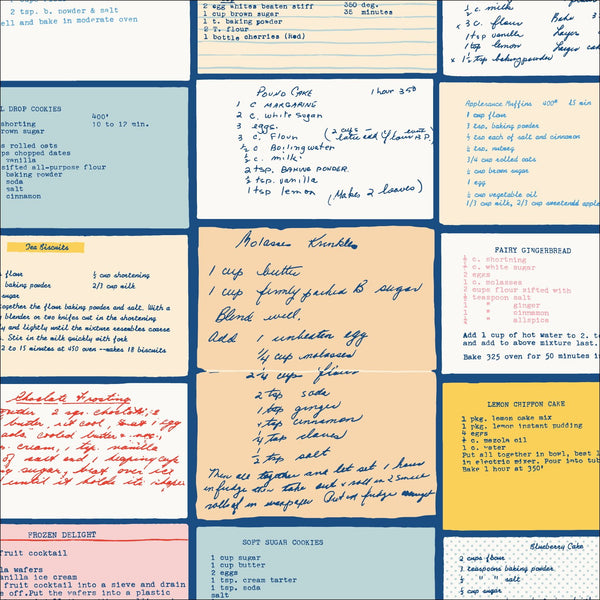 2 tsp. b. powder & salt
ell and bake in moderate oven
2 egg whites beaten stiff
1 cup brown sugar
1 t. baking powder
2 T. flour
1 bottle cherries (Red)
350 deg.
35 minutes
½ c. milk
3 c. flour
1 tsp vanilla
1 tsp lemon
1½ tsp baking powder
Bake
Layer
Larger cake
L DROP COOKIES
400°
10 to 12 min.
shorting
rown sugar
s rolled oats
ps chopped dates
vanilla
sifted all-purpose flour
baking powder
soda
salt
cinnamon
POUND CAKE
1 hour 350
1 C MARGARINE
2 c. white sugar
3 eggs.
3 c. Flour
½ c Boiling water
½ c. milk
2 tsp. BAKING POWDER
½ tsp. vanilla
1 tsp lemon
(Makes 2 loaves)
Applesauce Muffins 400° 25 min
1 cup flour
3 tsp. baking powder
½ tsp each of salt and cinnamon
½ tsp. nutmeg
3/4 cup rolled oats
¼ cup brown sugar
1 egg
¼ cup vegetable oil
1/3 cup milk, 2/3 cup sweetened apple
Tea Biscuits
flour
½ cup shortening
baking powder
2/3 cup milk
sugar
together the flour baking powder and salt. With a
blender or two knifes cut in the shortening
y and lightly until the mixture resembles coarse
. Stir in the milk quickly with fork
2 to 15 minutes at 450 oven --makes 18 biscuits
Molasses Krinkles
1 cup butter
1 cup firmly packed B sugar
Blend well.
Add 1 unbeaten egg
¼ cup molasses
2¼ cups flour
2 tsp soda
1 tsp ginger
1 tsp cinnamon
½ tsp cloves
½ tsp salt
Mix all together and let set 1 hour
in fridge then take out & roll in 2 small
rolls of in waxpaper Put in fridge overnight
FAIRY GINGERBREAD
½ c. shortning
½ c. white sugar
2 eggs
1 c. molasses
2 cups flour sifted with
½ teaspoon salt
1 " ginger
1 " cinnamon
½ " allspice
Add 1 cup of hot water to 2. t
and add to above mixture last.
Bake 325 oven for 50 minutes i
Choclate Frosting
butter, 2 sqs. choclate, 2
butter, let cool, beat 1 egg
cooled butter &
p. cream, 1 tsp. vanilla
of salt and 1 heaping cup
g sugar, beat over ice
until it holds its shape
LEMON CHIFFON CAKE
1 pkg. lemon cake mix
1 pkg. lemon instant pudding
4 eggs
½ c. mazola oil
1 c. water
Put all together in bowl, beat 1
in electric mixer. Pour into tub
Bake 1 hour at 350'
FROZEN DELIGHT
fruit cocktail
la wafers
anilla ice cream
fruit cocktail into a sieve and drain
e off.Put the wafers into a plastic
SOFT SUGAR COOKIES
1 cup sugar
1 cup butter
2 eggs
1 tsp. cream tarter
1 tsp. soda
salt
Blueberry Cake
2 cups flour
3 teaspoons baking powder
½ " " salt
½ cup sugar